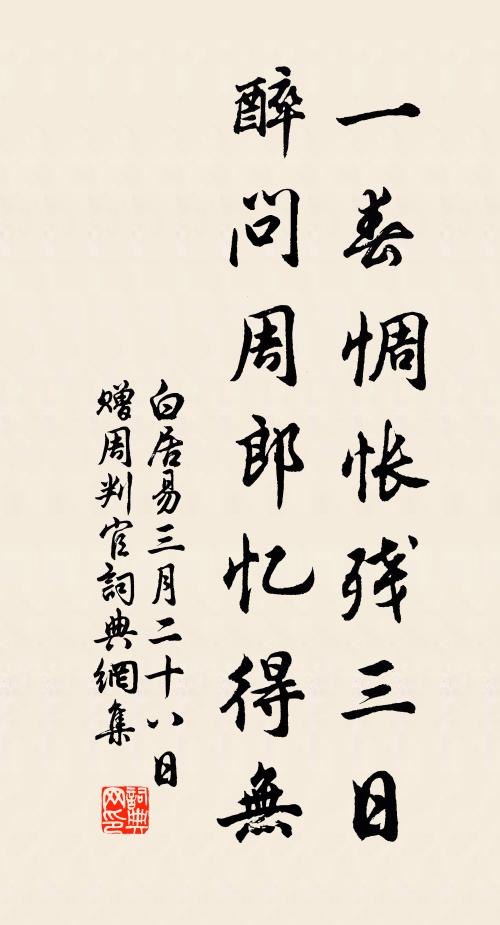 一春惆怅残三日
醉问周郎忆得無
白居易三月二十八日
赠周判官詞典網集
詞典
网印